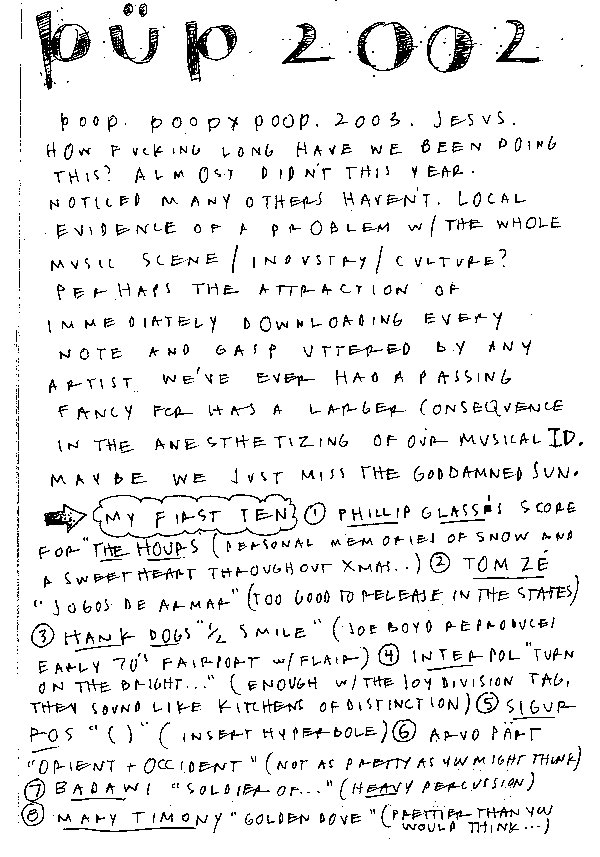 püp 2002
poop. poopy poop. 2003. JESUS.
HOW FUCKING LONG HAVE WE BEEN DOING
THIS? ALMOST DIDN'T THIS YEAR.
NOTICED MANY OTHERS HAVEN'T. LOCAL
EVIDENCE OF A PROBLEM W/ THE WHOLE
MUSIC SCENE/INDUSTRY/CULTURE?
PERHAPS THE ATTRACTION OF
IMMEDIATELY DOWNLOADING EVERY
NOTE AND GASP UTTERED BY ANY
ARTIST WE'VE EVER HAD A PASSING
FANCY FOR HAS A LARGER CONSEQUENCE
IN THE ANESTHETIZING OF OUR MUSICAL ID.
MAYBE WE JUST MISS THE GODDAMNED SUN.
MY FIRST TEN ① PHILLIP GLASS'S SCORE
FOR "THE HOURS (PERSONAL MEMORIES OF SNOW AND
A SWEETHEART THROUGHOUT XMAS..) ② TOM ZÉ
"JOGOS DE ARMAR" (TOO GOOD TO RELEASE IN THE STATES)
③ HANK DOGS "½ SMILE" (JOE BOYD REPRODUCES
EARLY 70'S FAIRPORT W/ FLAIR) ④ INTERPOL "TURN
ON THE BRIGHT..." (ENOUGH W/ THE JOY DIVISION TAG,
THEY SOUND LIKE KITCHENS OF DISTINCTION) ⑤ SIGUR
ROS "( )" (INSERT HYPERBOLE) ⑥ ARVO PÄRT
"ORIENT + OCCIDENT" (NOT AS PRETTY AS YOU MIGHT THINK)
⑦ BADAWI "SOLDIER OF..." (HEAVY PERCUSSION)
⑧ MARY TIMONY "GOLDEN DOVE" (PRETTIER THAN YOU
WOULD THINK...)